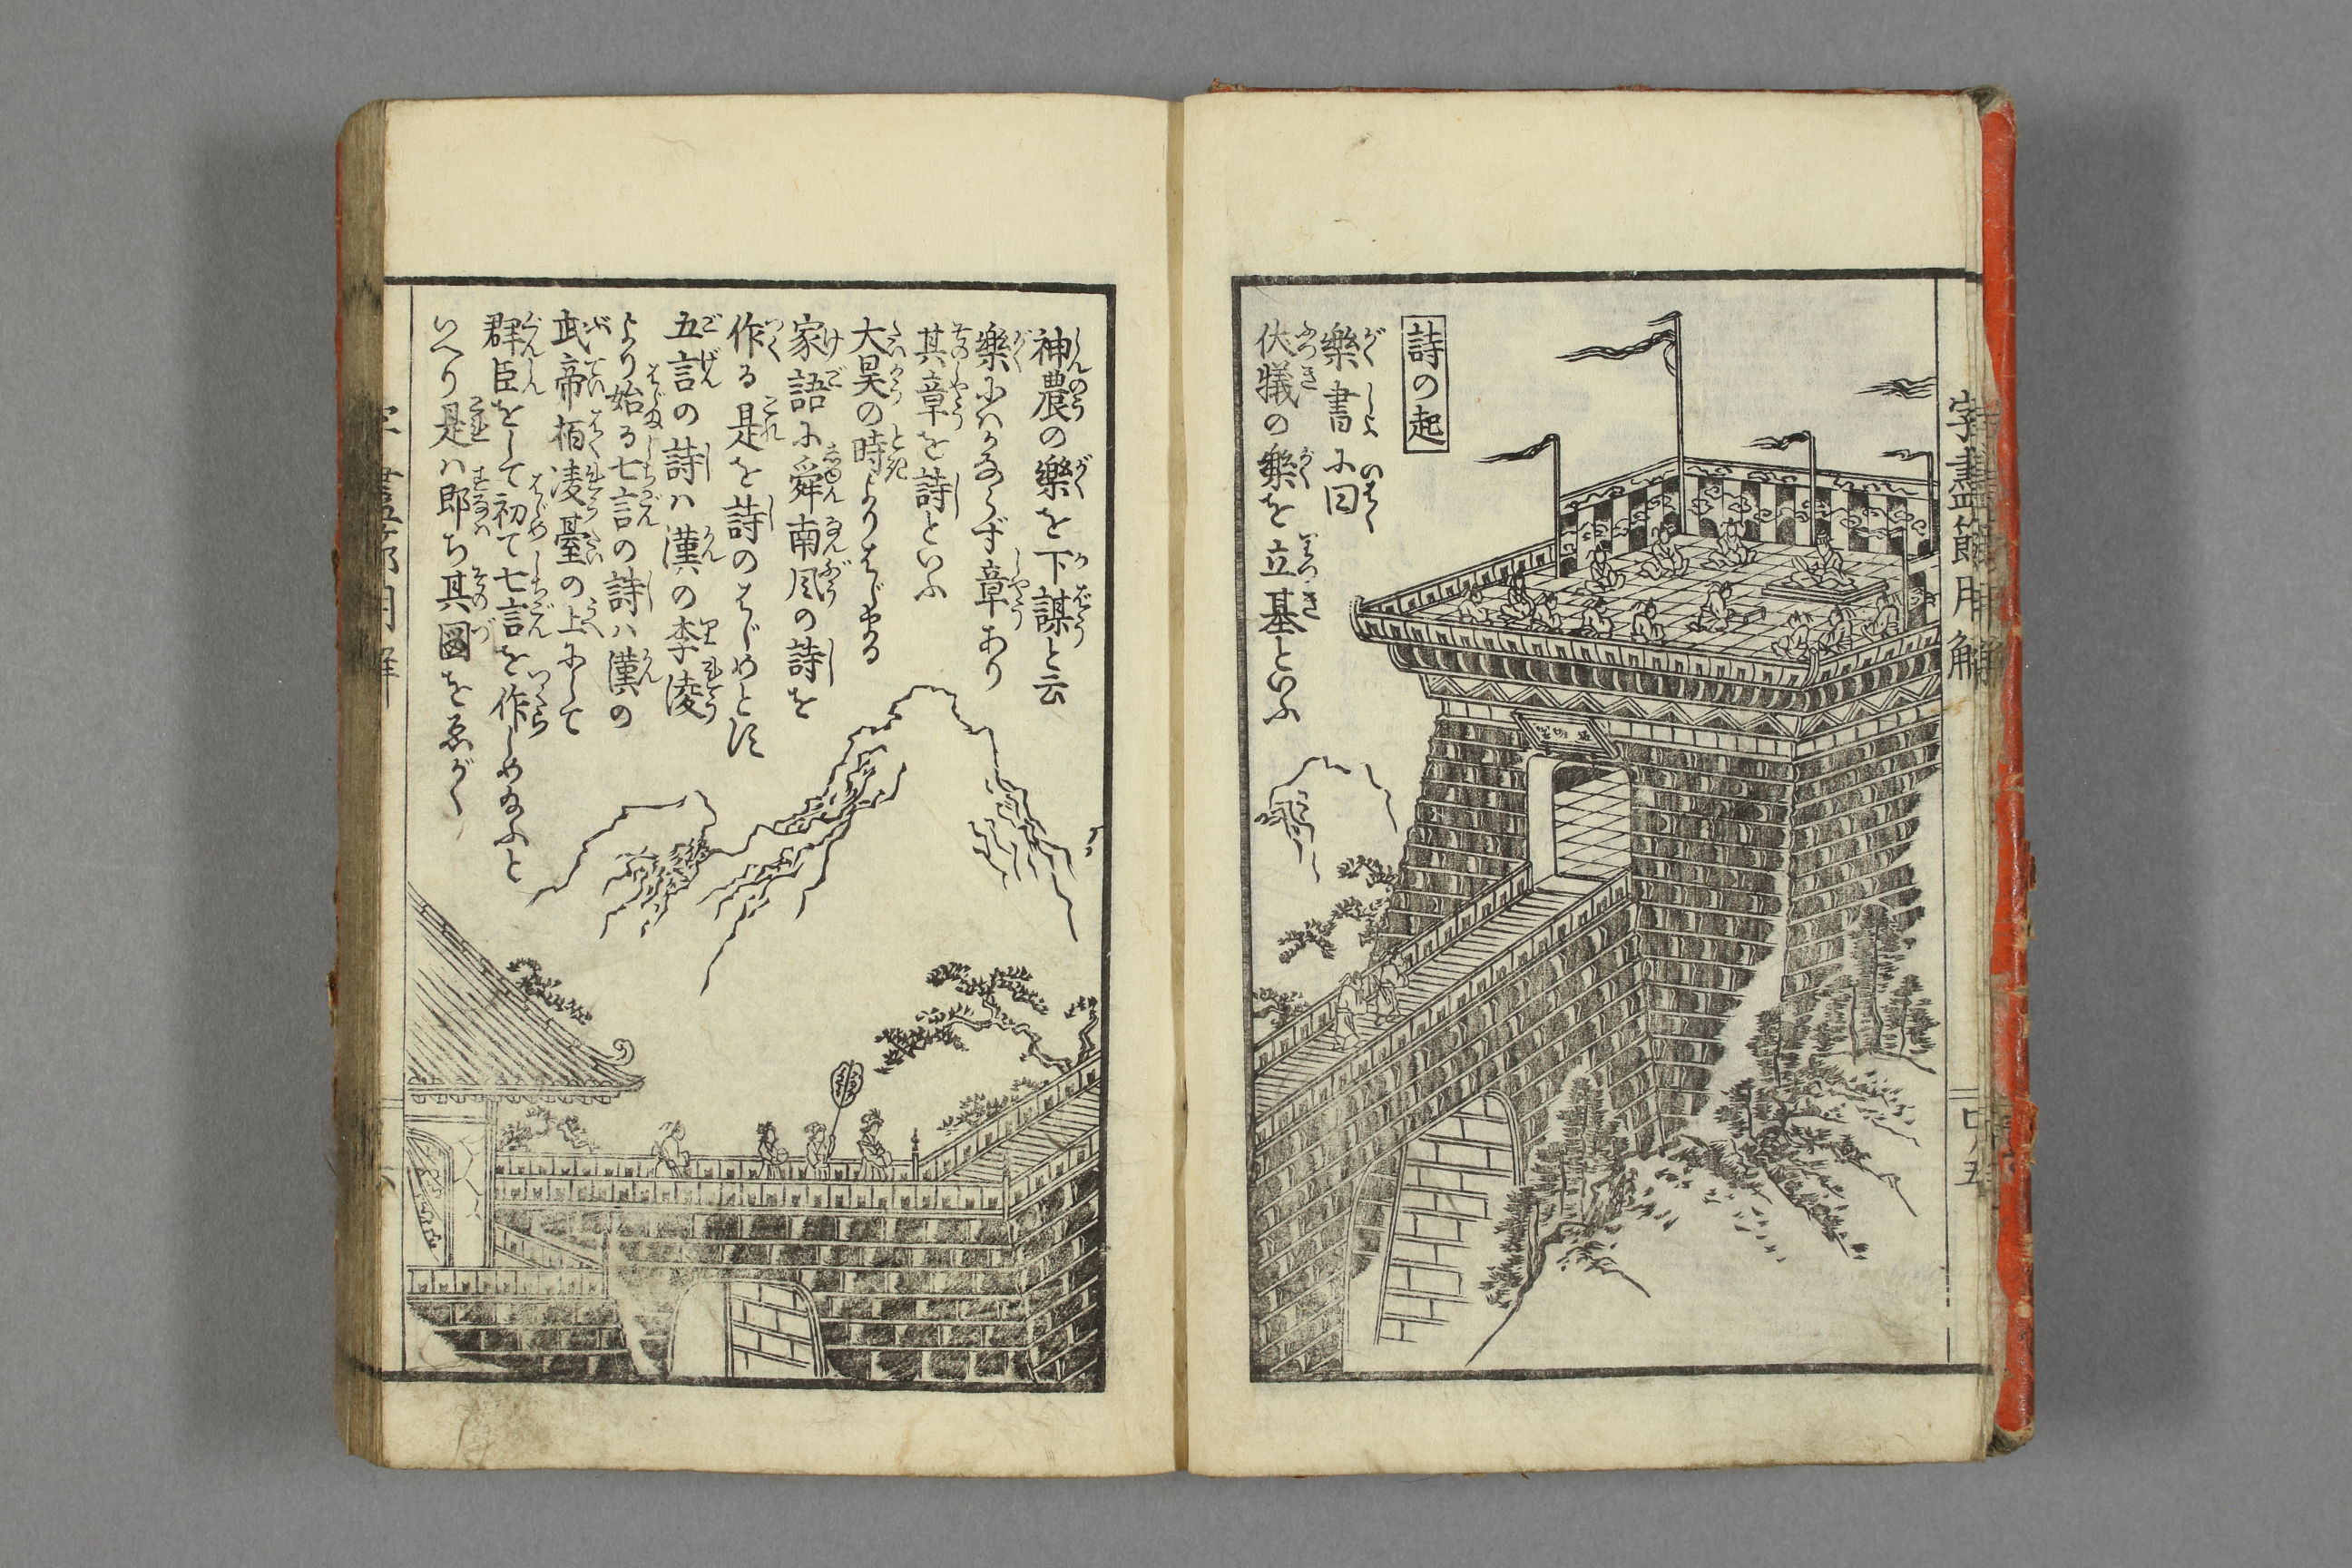 詩の起
樂書に曰
伏犠の樂を立基といふ
神農の樂を下謀と云
樂にハかならず章あり
其章を詩といふ
大昊の時よりはじまる
家語に舜南風の詩を
作る是を詩のはじめとす
五言の詩ハ漢の李凌
より始る七言の詩ハ漢の
武帝栢凌臺の上にして
群臣をして初て七言を作しめ給ふと
いへり是ハ即ち其図をゑがく
字盡節用解